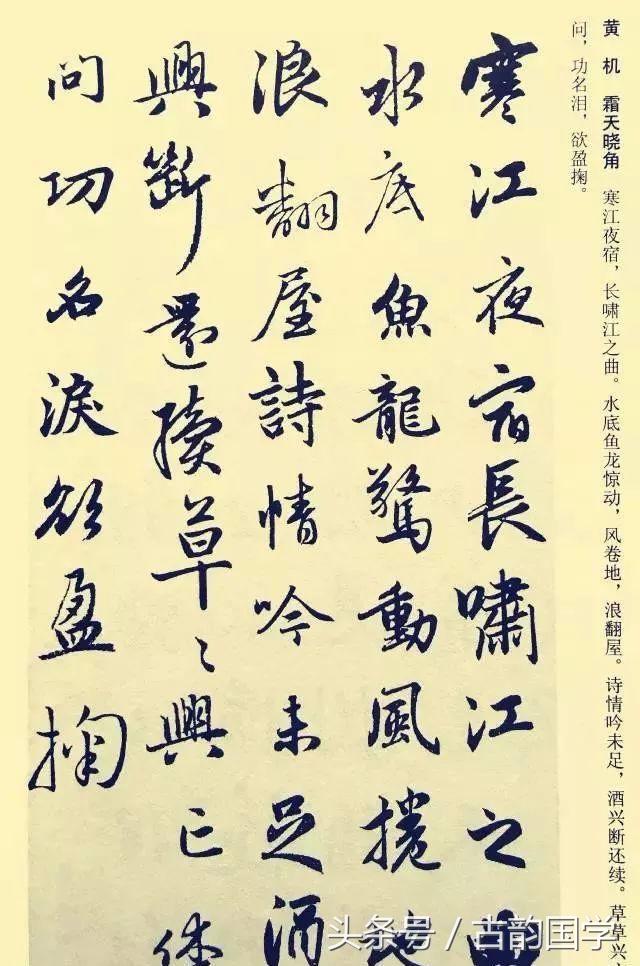 黄机 霜天晓角 寒江夜宿，长啸江之曲。水底鱼龙惊动，风卷地，浪翻屋。诗情吟未足，酒兴断还续。草草兴
问，功名泪，欲盈掬。
寒江夜宿長嘯江之曲
水底魚龍驚動風捲地
浪翻屋詩情吟未足酒
興斷還續草〻興亡休
問功名淚欲盈掬
头条号 / 古韵国学